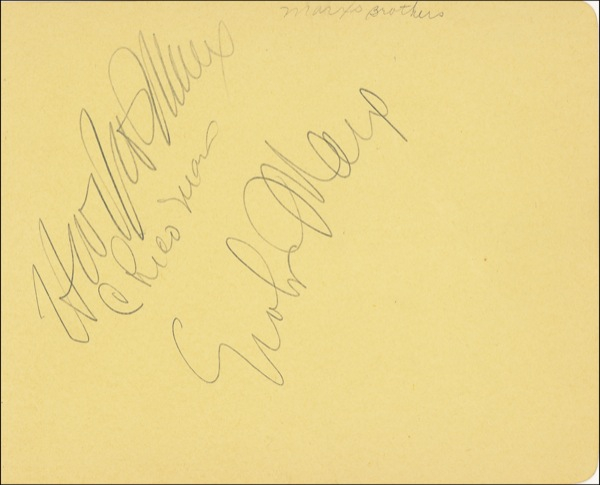 Marxs Brothers
Harpo Marx
Chico Marx
Groucho Marx